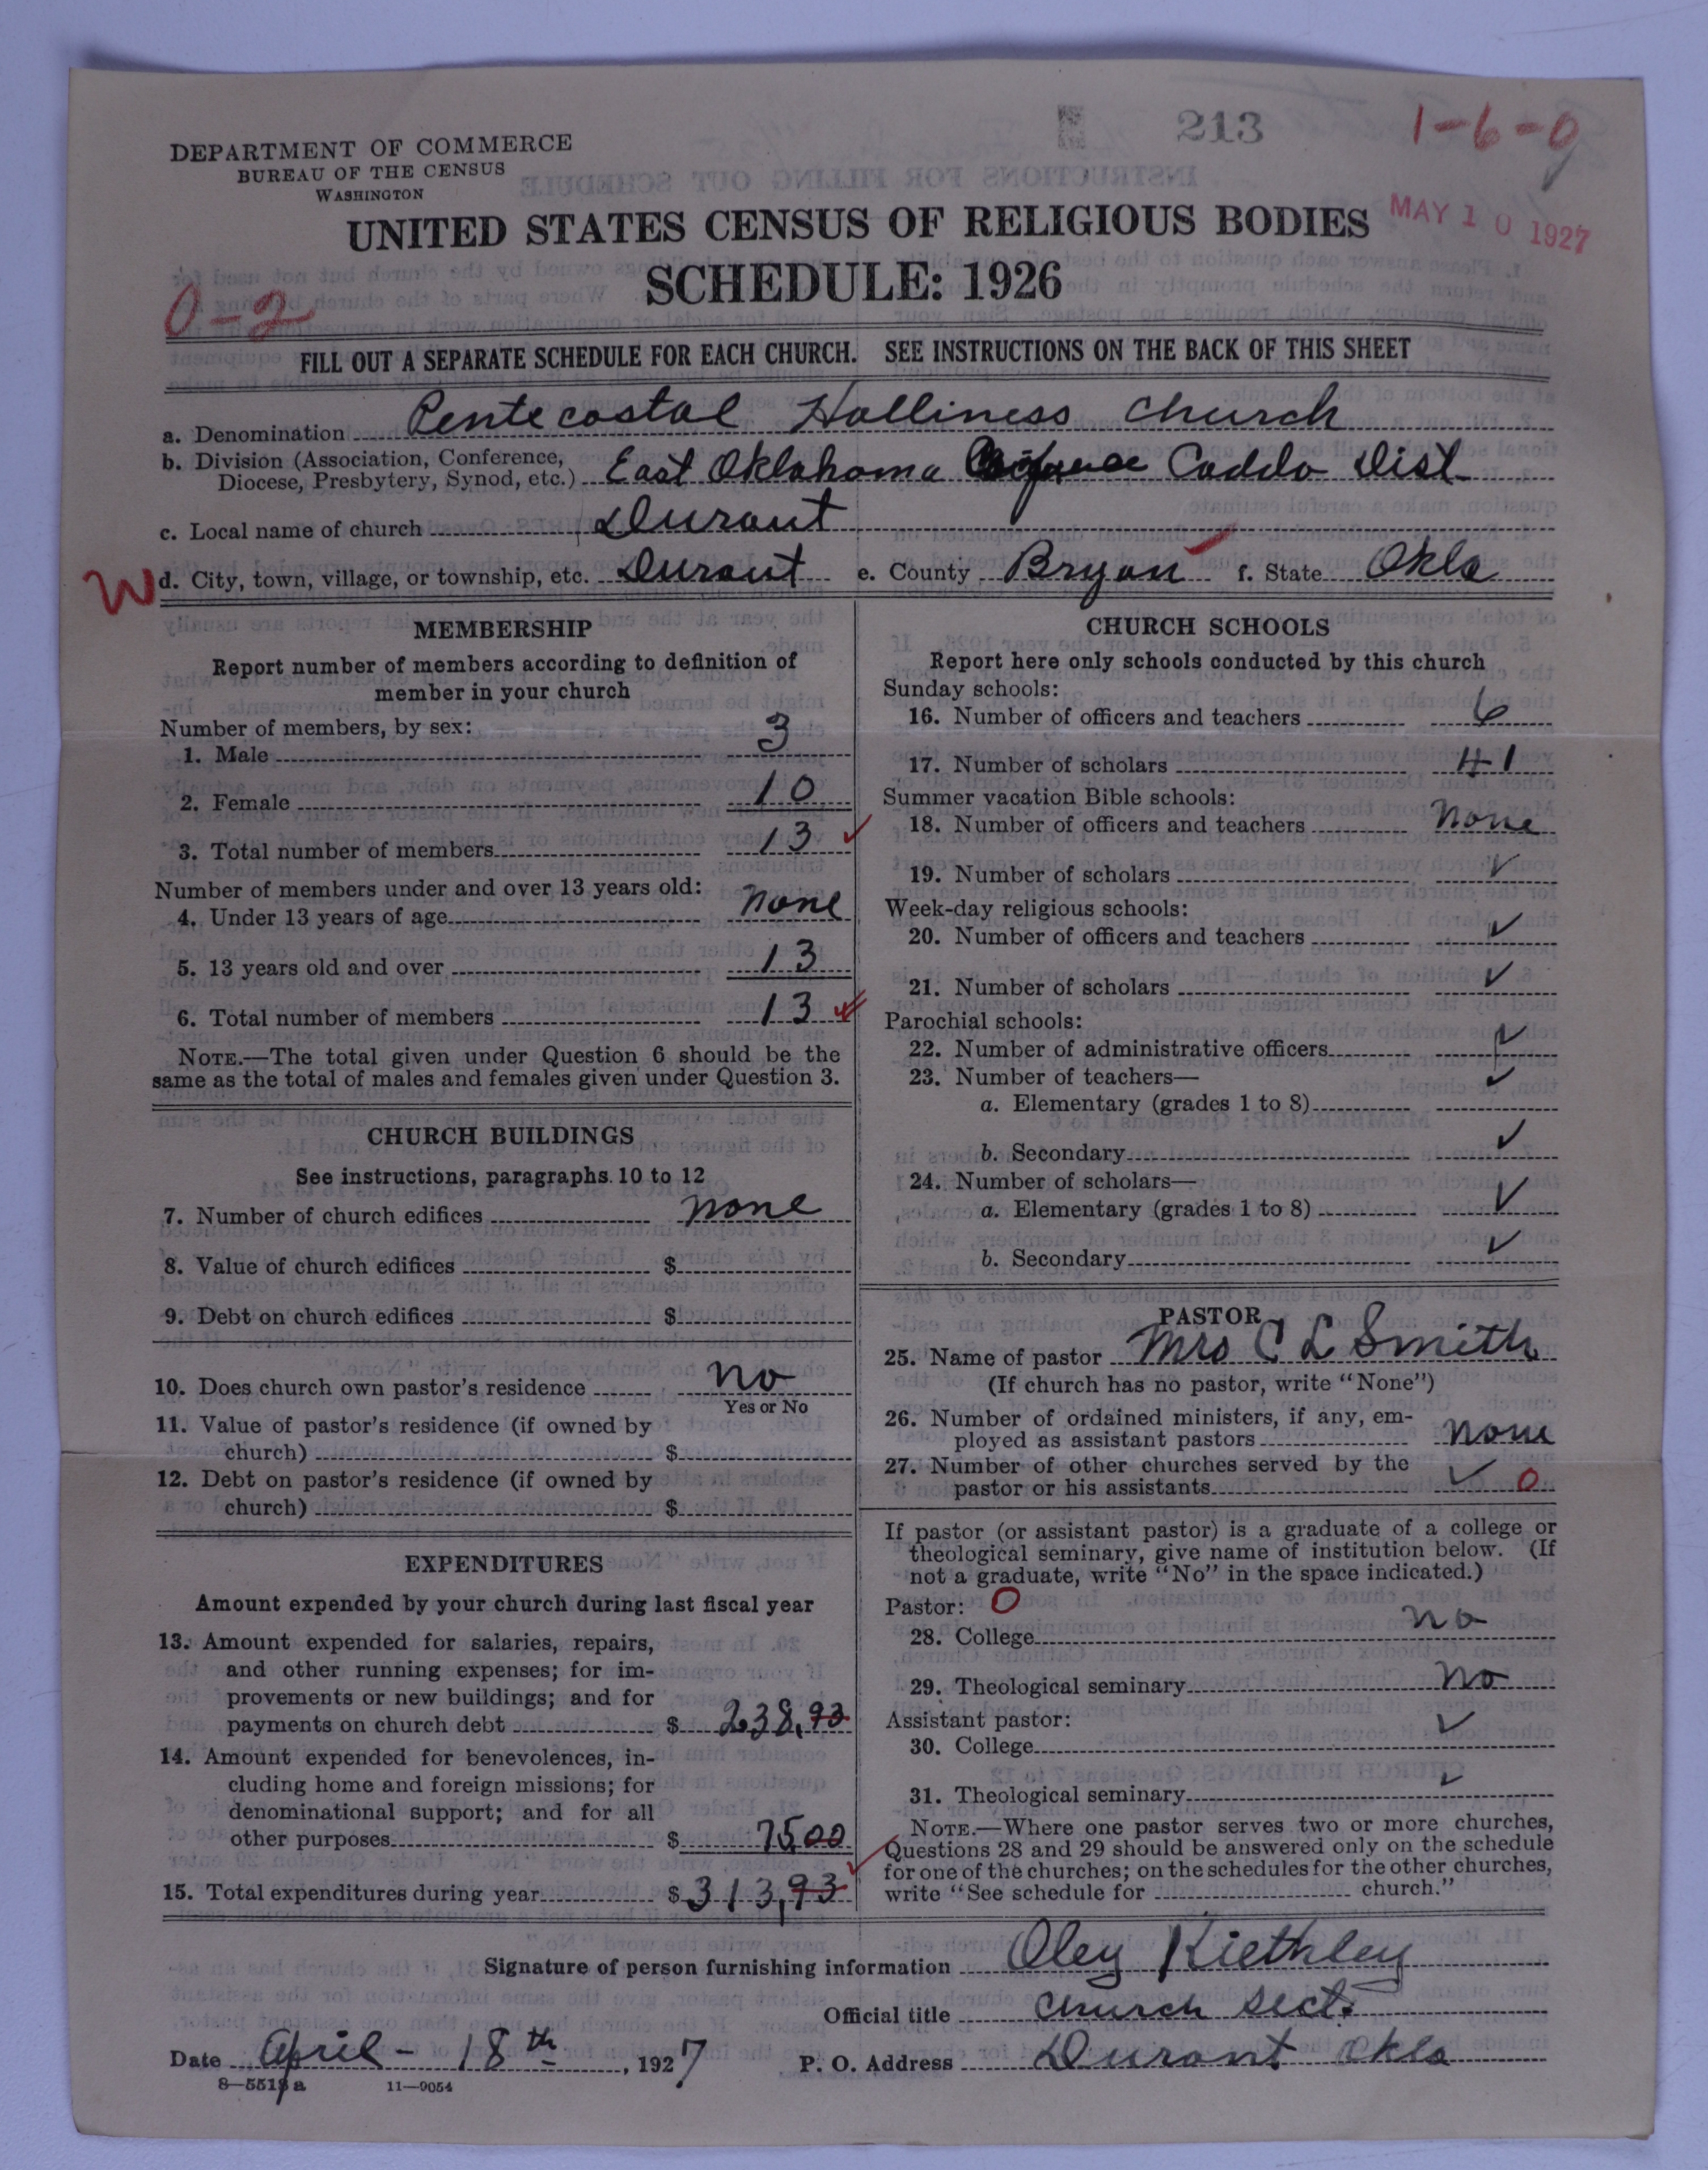 213
1-6-0
DEPARTMENT OF COMMERCE
BUREAU OF THE CENSUS
WASHINGTON
UNITED STATES CENSUS OF RELIGIOUS BODIES
MAY 10 1927
SCHEDULE: 1926
0-2
FILL OUT A SEPARATE SCHEDULE FOR EACH CHURCH. SEE INSTRUCTIONS ON THE BACK OF THIS SHEET
a. Denomination Pentecostal Holliness Church
b. Division (Association, Conference, Diocese, Presbytery, Synod, etc.) East Oklahoma Caddo Dist
c. Local name of church Durant
W d. City, town, village, or township, etc. Durant e. County Bryan f. State Okla
MEMBERSHIP
Report number of members according to definition of
member in your church
Number of members, by sex:
1. Male 3
2. Female 10
3. Total number of members 13 ✓
Number of members under and over 13 years old:
4. Under 13 years of age none
5. 13 years old and over 13
6. Total number of members 13 ✓
NOTE.—The total given under Question 6 should be the
same as the total of males and females given under Question 3.
CHURCH BUILDINGS
See instructions, paragraphs 10 to 12
7. Number of church edifices none
8. Value of church edifices $
9. Debt on church edifices $
10. Does church own pastor's residence no
Yes or No
11. Value of pastor's residence (if owned by
church) $
12. Debt on pastor's residence (if owned by
church) $
EXPENDITURES
Amount expended by your church during last fiscal year
13. Amount expended for salaries, repairs,
and other running expenses; for im-
provements or new buildings; and for
payments on church debt $ 238,93
14. Amount expended for benevolences, in-
cluding home and foreign missions; for
denominational support; and for all
other purposes $ 75 00
15. Total expenditures during year $ 313,93 ✓
CHURCH SCHOOLS
Report here only schools conducted by this church
Sunday schools:
16. Number of officers and teachers 6
17. Number of scholars 41
Summer vacation Bible schools:
18. Number of officers and teachers none
19. Number of scholars ✓
Week-day religious schools:
20. Number of officers and teachers ✓
21. Number of scholars ✓
Parochial schools:
22. Number of administrative officers ✓
23. Number of teachers— ✓
a. Elementary (grades 1 to 8)
b. Secondary ✓
24. Number of scholars—
a. Elementary (grades 1 to 8) ✓
b. Secondary ✓
PASTOR
25. Name of pastor Mrs C L Smith
(If church has no pastor, write "None")
26. Number of ordained ministers, if any, em-
ployed as assistant pastors none
27. Number of other churches served by the
pastor or his assistants ✓ 0
If pastor (or assistant pastor) is a graduate of a college or
theological seminary, give name of institution below. (If
not a graduate, write "No" in the space indicated.)
Pastor: 0
28. College no
29. Theological seminary no
Assistant pastor:
30. College ✓
31. Theological seminary ✓
NOTE.—Where one pastor serves two or more churches,
Questions 28 and 29 should be answered only on the schedule
for one of the churches; on the schedules for the other churches,
write "See schedule for church."
Signature of person furnishing information Oley Kiethley
Official title Church Sect.
Date April - 18th, 1927 P. O. Address Durant Okla
8—5518 a 11—9054